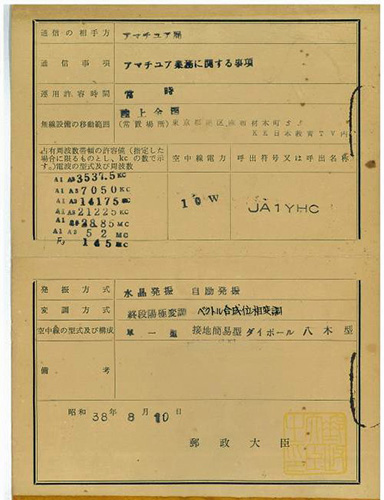 通信の相手方 アマチユア局
通信事項 アマチユア業務に関する事項
運用許容時間 常時
無線設備の移動範囲 陸上全国
(常置場所) 東京都港区麻布材木町
KK日本教育TV内
占有周波数帯幅の許容値(指定した場合に限るものとし、kcの数で示す。)電波の型式及び周波数 空中線電力 呼出符号又は呼出名称
A1 A3 3537.5 KC
A1 A3 7050 KC
A1 A3 14175 KC
A1 A3 21225 KC
A1 A3 28.85 MC
A1 A3 52 MC
F3 145 MC
10W
JA1YHC
発振方式 水晶発振 自励発振
変調方式 終段陽極変調 ベクトル合成位相変調
空中線の型式及び構成 単一型 接地簡易型 ダイポール 八木型
備考
昭和38年8月10日
郵政大臣